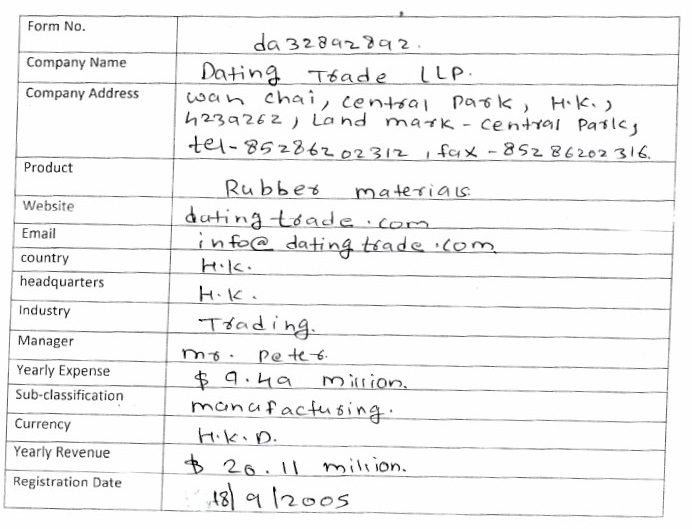 Form No. da32892892.
Company Name Dating Trade LLP.
Company Address wan chai, central Park, H.K.,
h239262, Land mark - central Park,
tel-85286202312, fax - 85286202316.
Product Rubber materials
Website datingtrade.com
Email info@datingtrade.com
country H.K.
headquarters H.K.
Industry Trading.
Manager mr. Peter.
Yearly Expense $ 9.49 million.
Sub-classification manufacturing.
Currency H.K.D.
Yearly Revenue $ 20.11 million.
Registration Date 18/9/2005